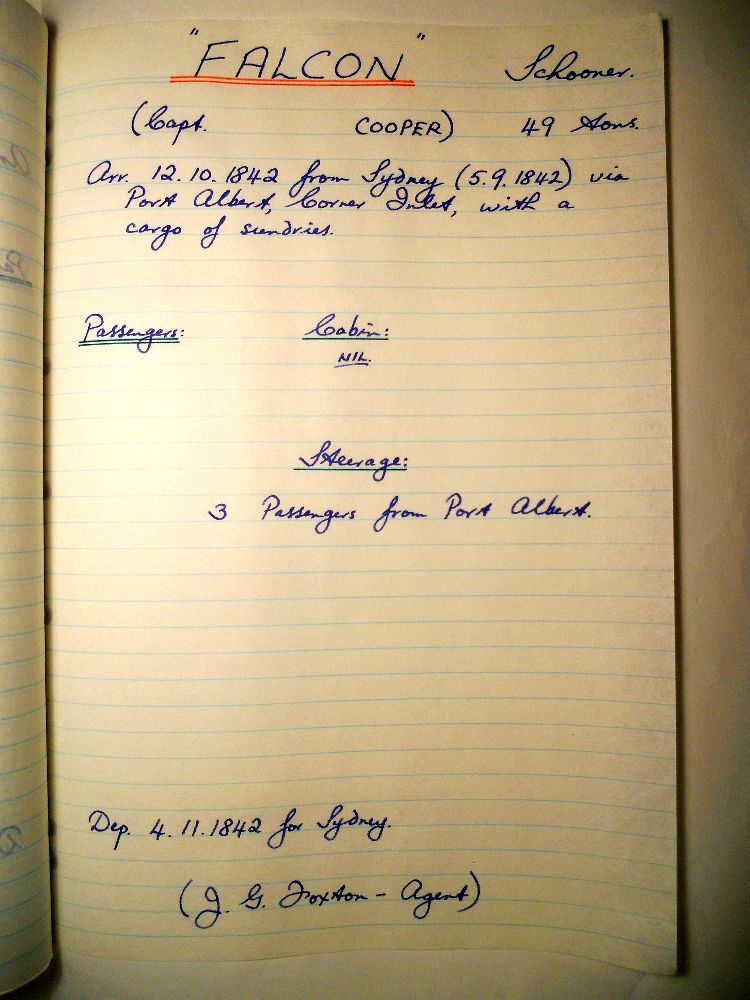 "FALCON" Schooner.
(Capt. COOPER) 49 Tons.
Arr. 12.10.1842 from Sydney (5.9.1842) via
Port Albert, Corner Inlet, with a
cargo of sundries.
Passengers: Cabin:
NIL.
Steerage:
3 Passengers from Port Albert.
Dep. 4.11.1842 for Sydney.
(J. G. Foxton - Agent)